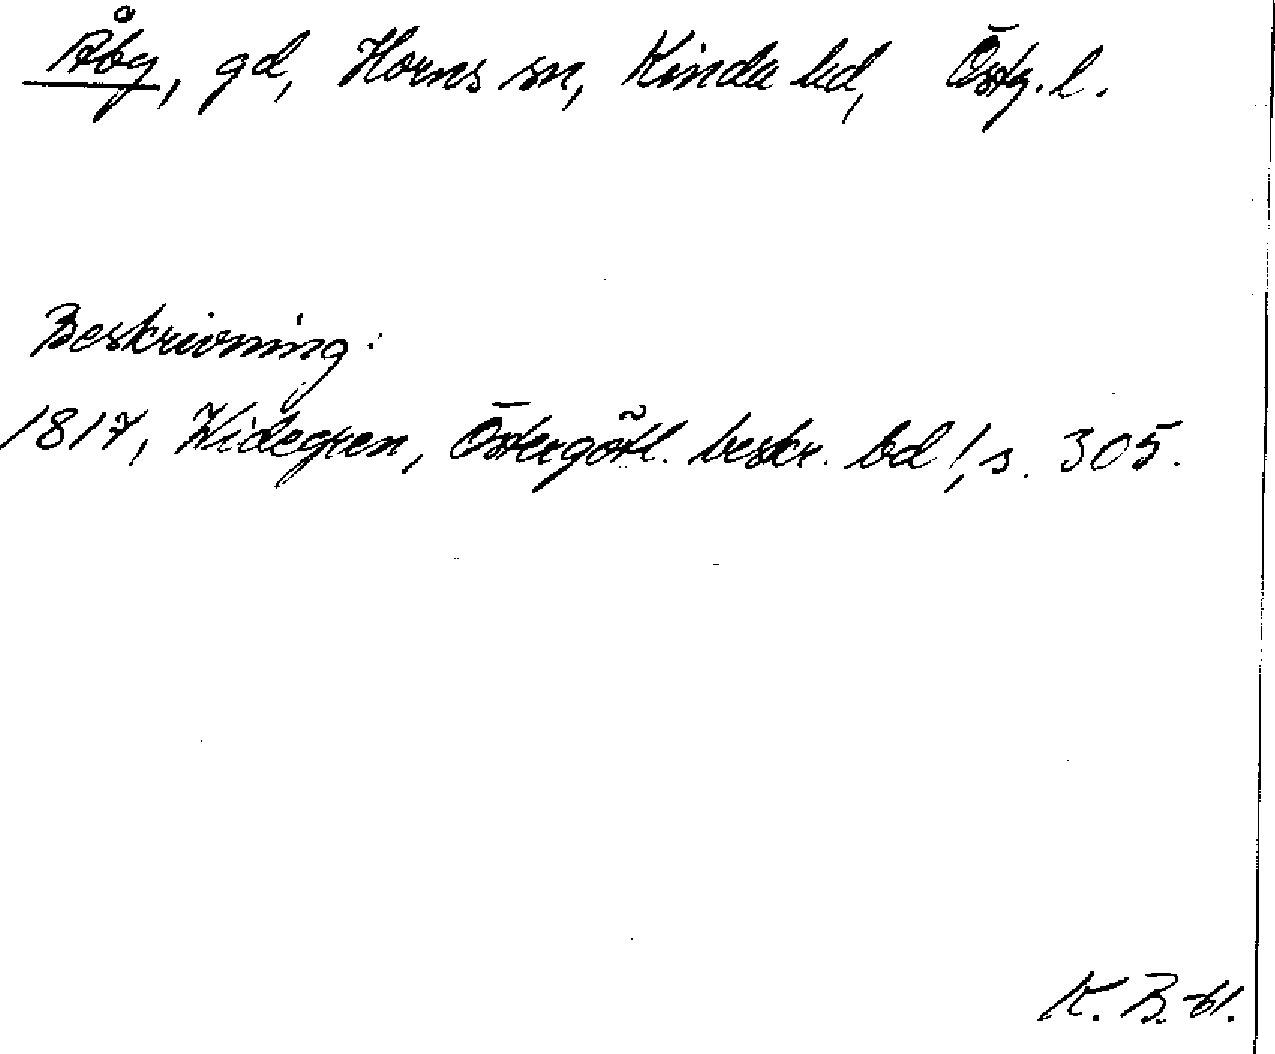 Åby, gd, Horns sn, Kinda hd, Östg. l.
Beskrivning:
1817, Widegren, Östergötl. beskr. bd 1, s. 305.
K. B. -61.